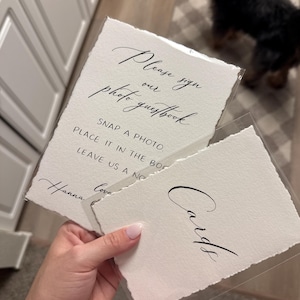 Please sign
our
photo guestbook
SNAP A PHOTO
PLACE IT IN THE BOO
LEAVE US A NO
love
Hanna
Cards